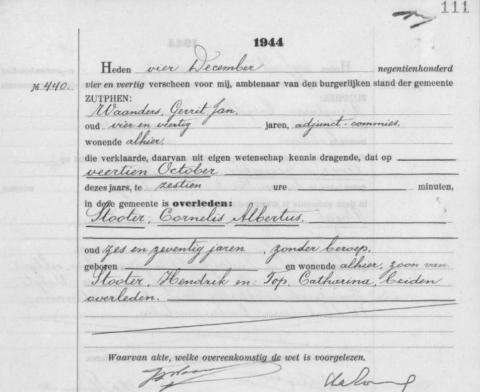 111
1944
Heden vier December negentienhonderd
№ 440. vier en veertig verscheen voor mij, ambtenaar van den burgerlijken stand der gemeente
ZUTPHEN:
Waanders, Gerrit Jan,
oud vier en veertig jaren, adjunct-commies,
wonende alhier,
die verklaarde, daarvan uit eigen wetenschap kennis dragende, dat op
veertien October
dezes jaars, te zestien ure minuten,
in deze gemeente is overleden:
Stooter, Cornelis Albertus,
oud zes en zeventig jaren, zonder beroep,
geboren en wonende alhier, zoon van
Stooter, Hendrik en Top, Catharina, beiden
overleden.
Waarvan akte, welke overeenkomstig de wet is voorgelezen.